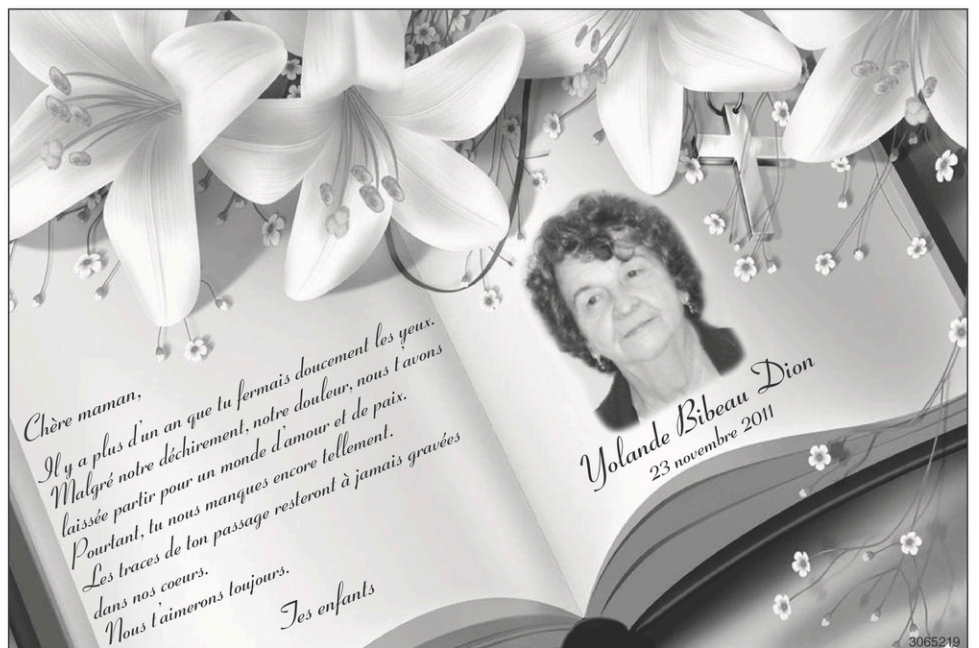 Chère maman,
Il y a plus d'un an que tu fermais doucement les yeux.
Malgré notre déchirement, notre douleur, nous t'avons
laissée partir pour un monde d'amour et de paix.
Pourtant, tu nous manques encore tellement.
Les traces de ton passage resteront à jamais gravées
dans nos coeurs.
Nous t'aimerons toujours.
Tes enfants
Yolande Bibeau Dion
23 novembre 2011
3065219